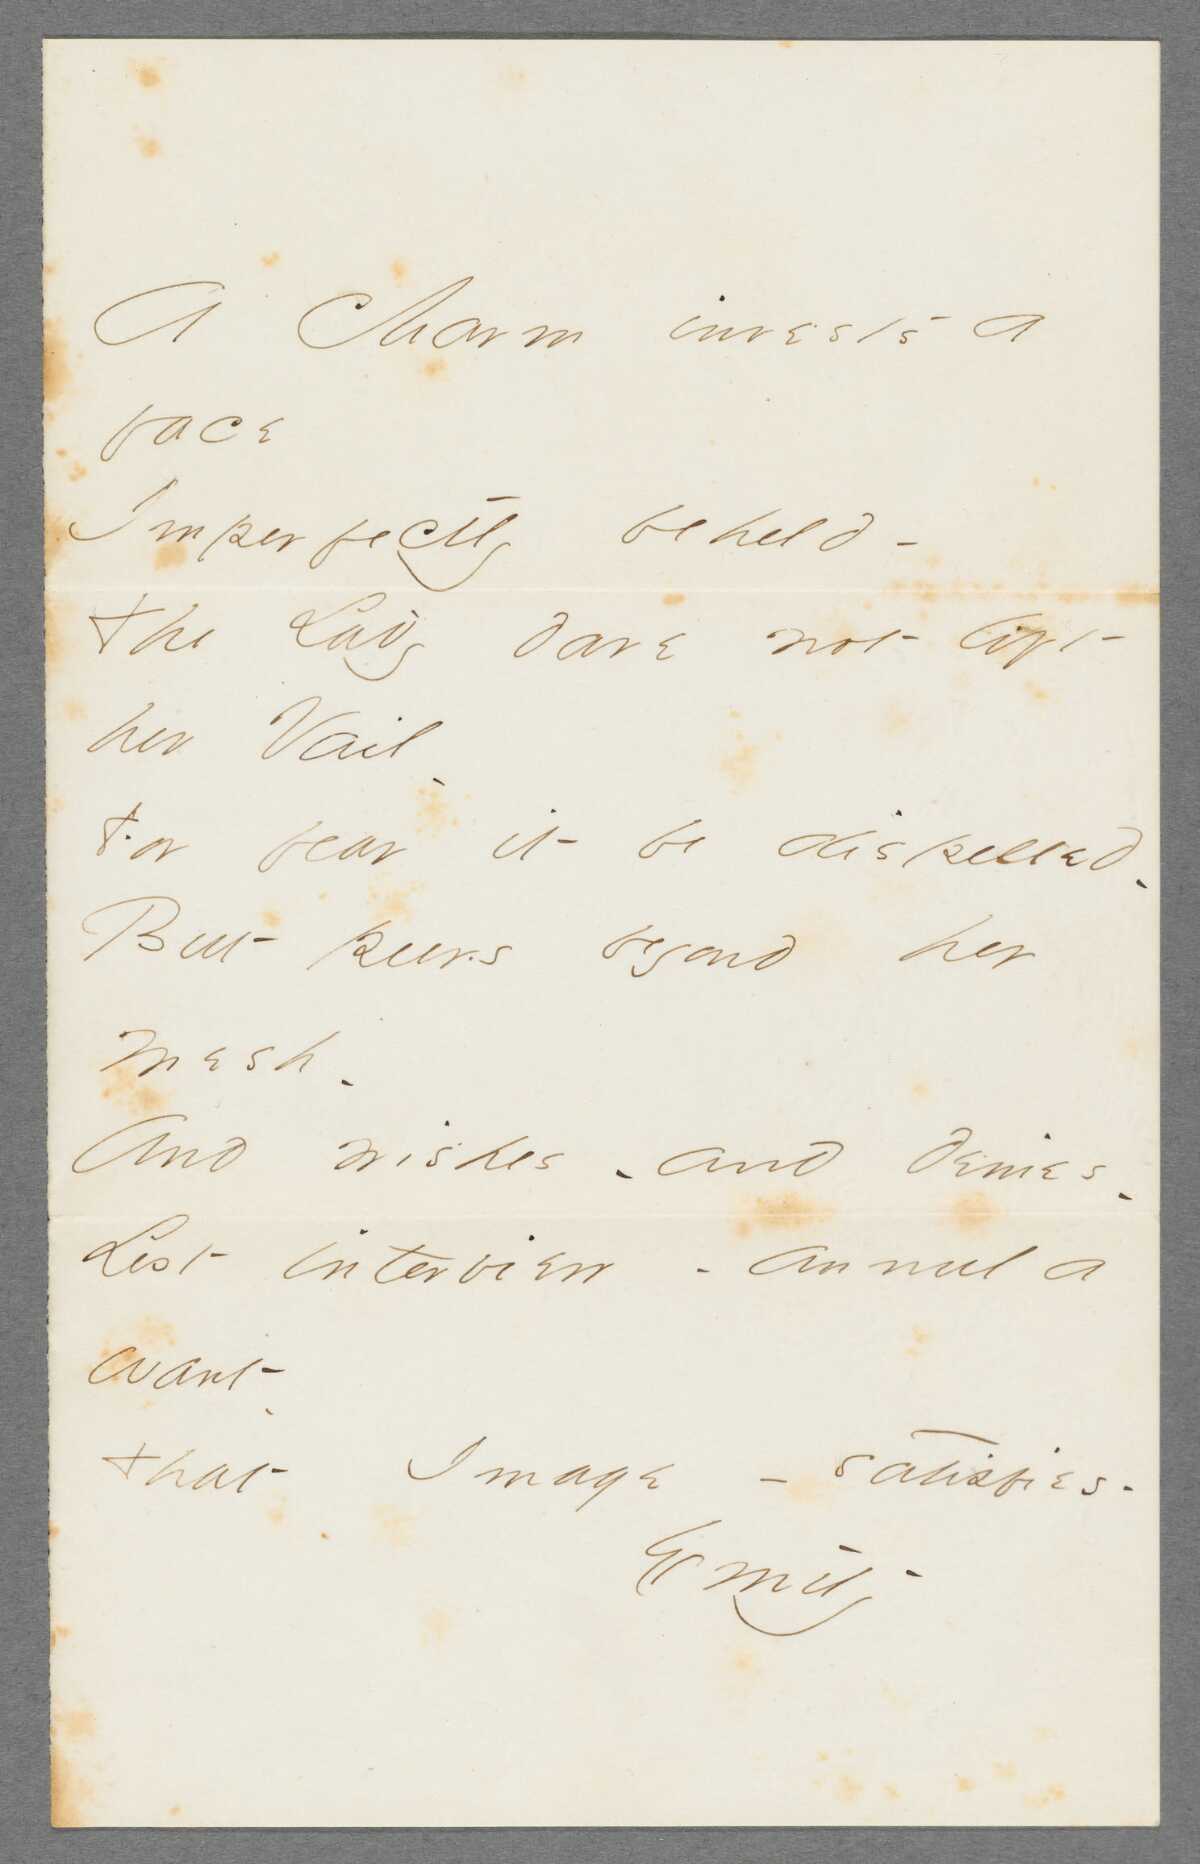 A Charm invests a
face
Imperfectly beheld -
The Lady dare not lift
her Vail -
For fear it be dispelled -
But peers beyond her
mesh -
And wishes - and denies -
Lest interview - annul a
want -
That Image - satisfies -
Emily -